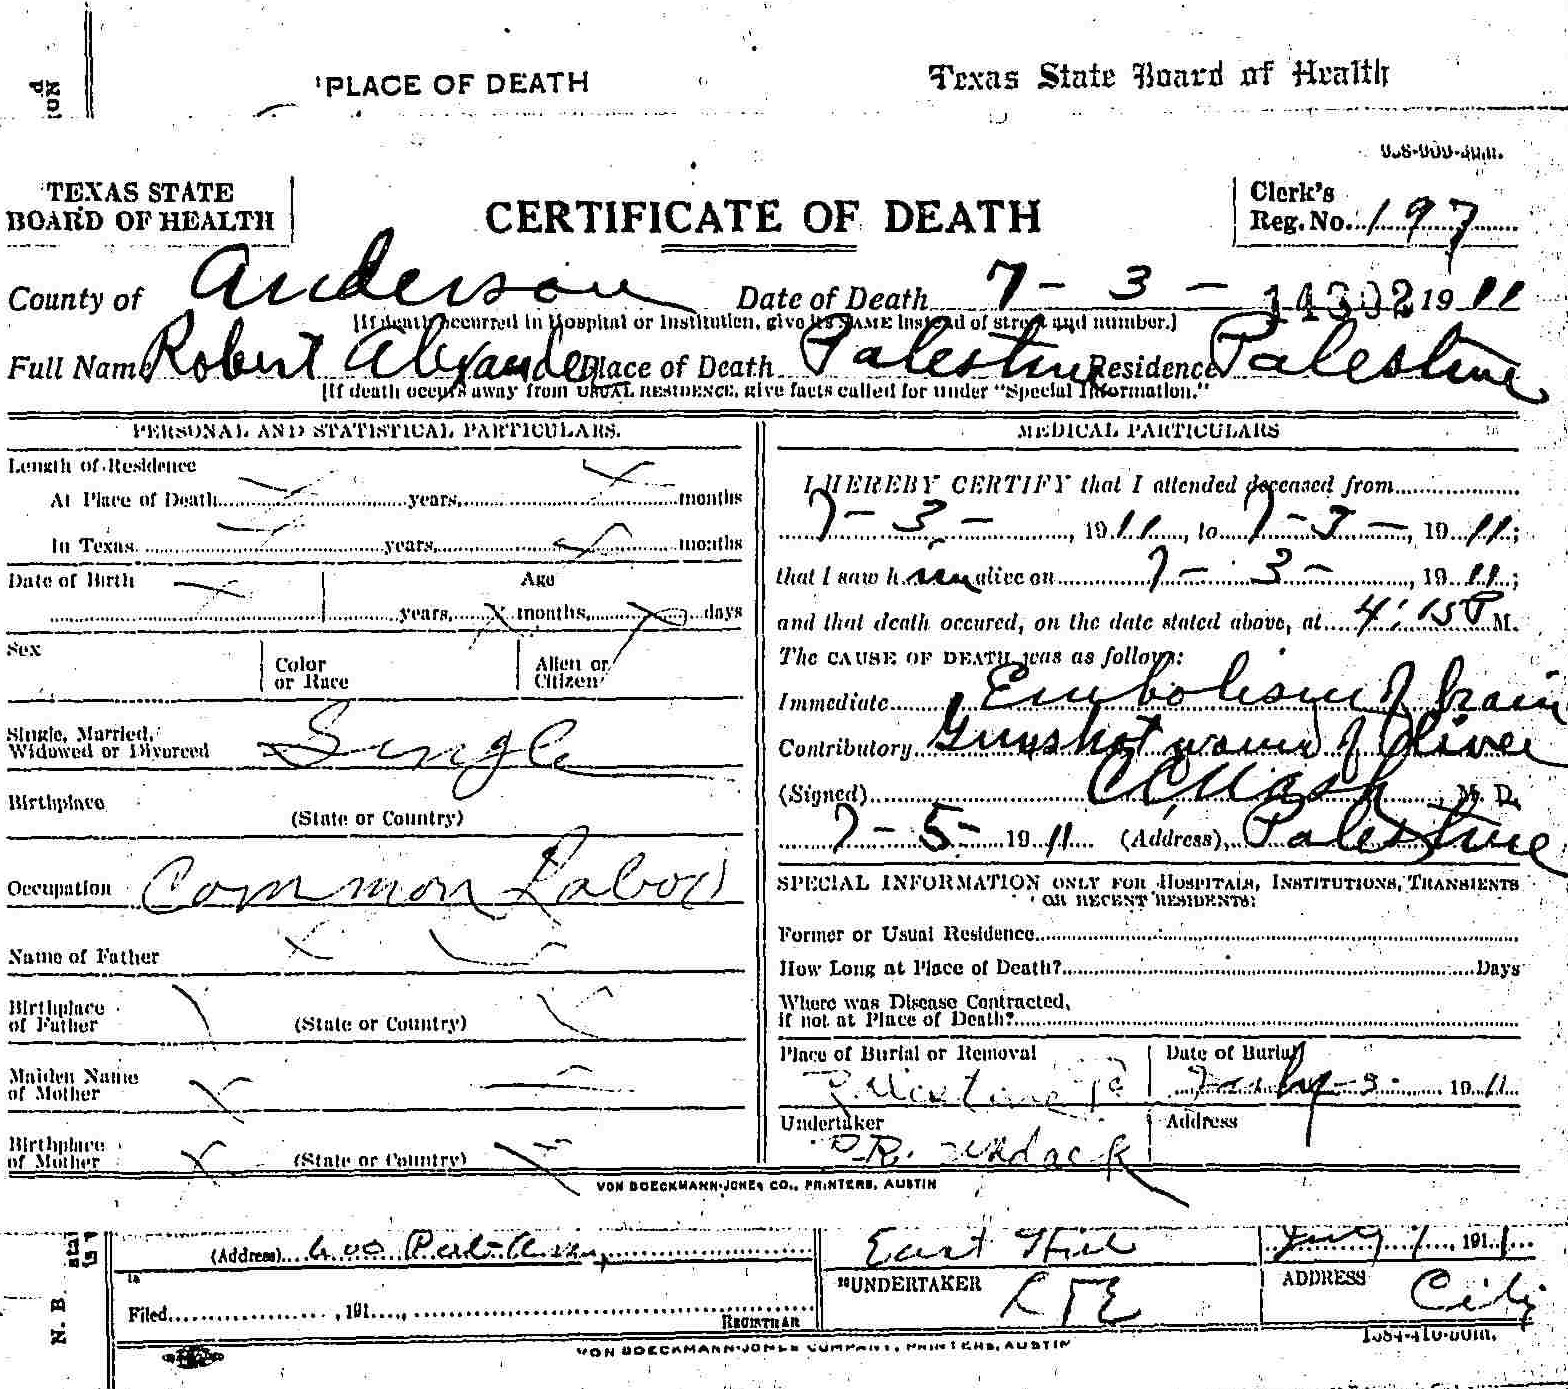 PLACE OF DEATH
Texas State Board of Health
TEXAS STATE
BOARD OF HEALTH
CERTIFICATE OF DEATH
Clerk's
Reg. No. 197
County of Anderson Date of Death 7 - 3 - 14302 1911
[If death occurred in Hospital or Institution, give its NAME instead of street and number.]
Full Name Robert Alexander Place of Death Palestine Residence Palestine
[If death occurs away from USUAL RESIDENCE, give facts called for under "Special Information."
PERSONAL AND STATISTICAL PARTICULARS.
Length of Residence
At Place of Death years, months
In Texas years, months
Date of Birth Age
years, months, days
Sex
Color
or Race
Alien or
Citizen
Single, Married,
Widowed or Divorced Single
Birthplace
(State or Country)
Occupation Common Labor
Name of Father
Birthplace
of Father (State or Country)
Maiden Name
of Mother
Birthplace
of Mother (State or Country)
MEDICAL PARTICULARS
I HEREBY CERTIFY that I attended deceased from
7 - 3 - , 1911, to 7 - 3 - , 1911;
that I saw him alive on 7 - 3 - , 1911;
and that death occured, on the date stated above, at 4:15 P M.
The CAUSE OF DEATH was as follows:
Immediate Embolism of brain
Contributory Gunshot wound of liver
(Signed) M. D.
7 - 5 - 1911 (Address), Palestine
SPECIAL INFORMATION ONLY FOR HOSPITALS, INSTITUTIONS, TRANSIENTS
OR RECENT RESIDENTS:
Former or Usual Residence
How Long at Place of Death? Days
Where was Disease Contracted,
if not at Place of Death?
Place of Burial or Removal
Date of Burial
July - 1911
Undertaker
Address
VON BOECKMANN-JONES CO., PRINTERS, AUSTIN
(Address)
East Hill
July 1, 1911
Filed , 191
REGISTRAR
UNDERTAKER
ADDRESS
City
VON BOECKMANN-JONES COMPANY, PRINTERS, AUSTIN
N. B.